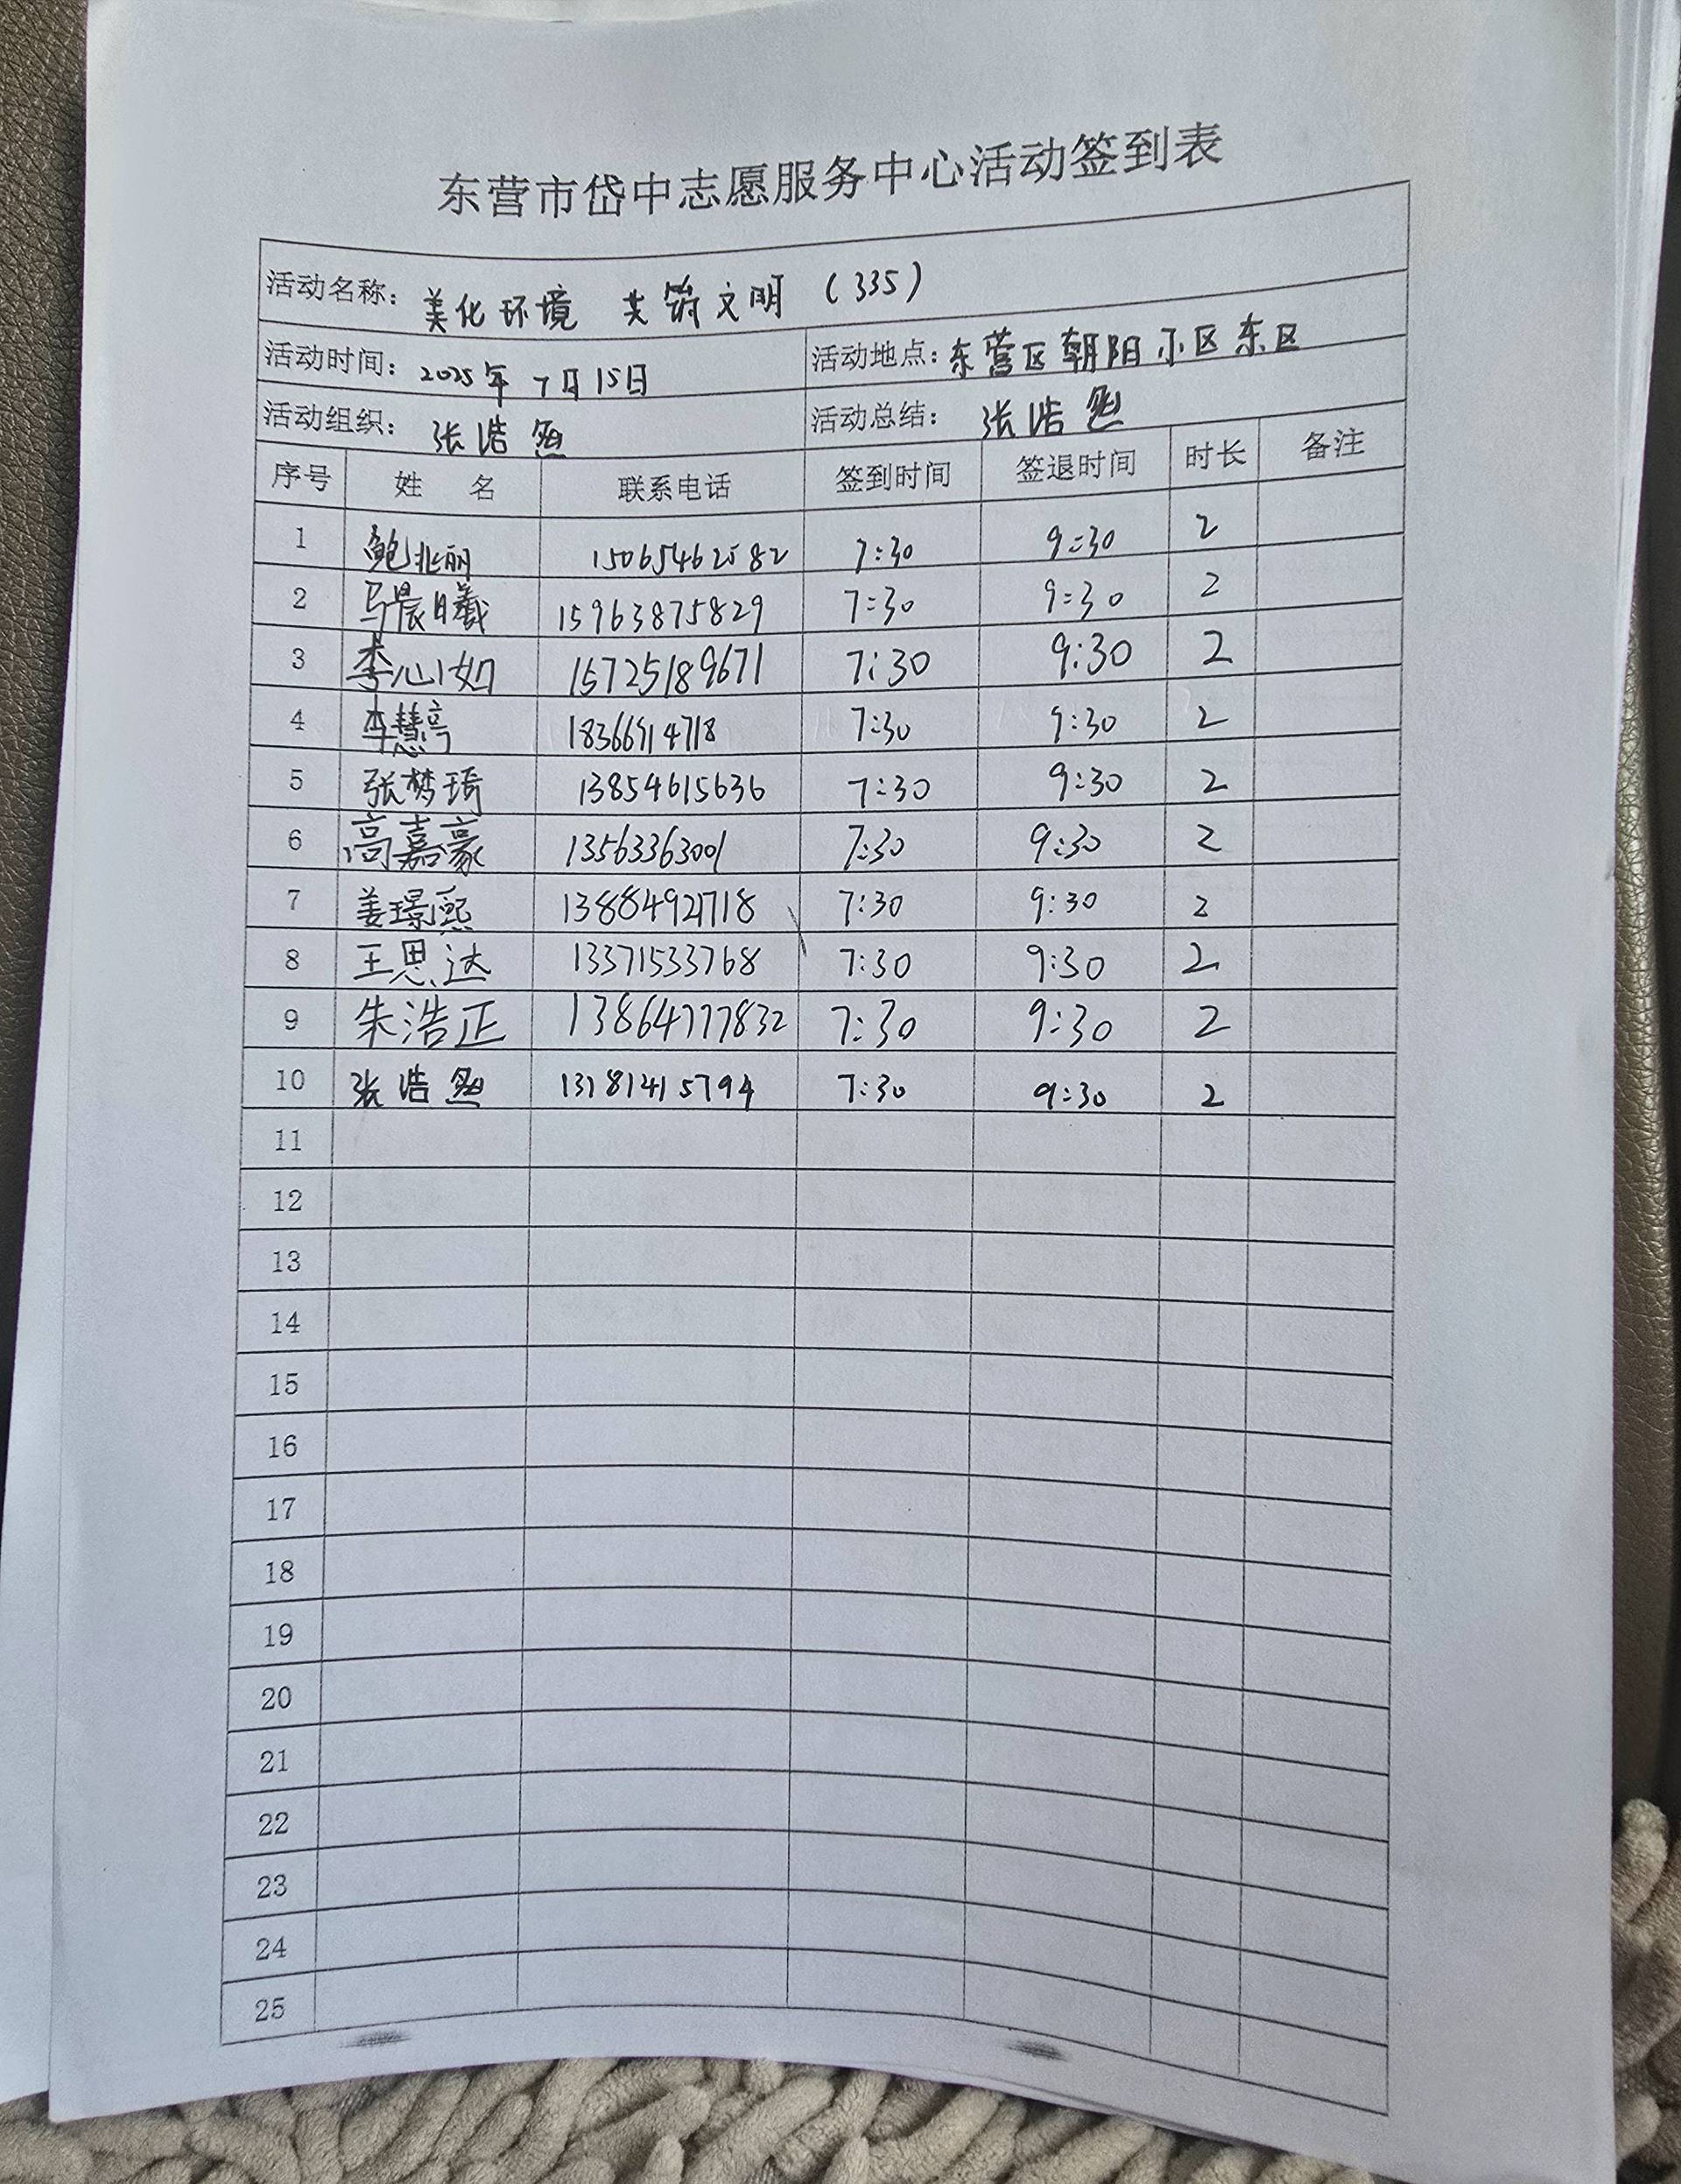 东营市岱中志愿服务中心活动签到表
活动名称: 美化环境 共筑文明 (335)
活动时间: 2025年7月15日 活动地点: 东营区朝阳小区东区
活动组织: 张浩然 活动总结: 张浩然
序号 姓 名 联系电话 签到时间 签退时间 时长 备注
1 鲍兆丽 15065462582 7:30 9:30 2
2 马晨曦 15963875829 7:30 9:30 2
3 李心如 15725189671 7:30 9:30 2
4 李慧亭 18366914718 7:30 9:30 2
5 张梦琦 13854615636 7:30 9:30 2
6 高嘉豪 13563363001 7:30 9:30 2
7 姜璟熙 13884921718 7:30 9:30 2
8 王思达 13371533768 7:30 9:30 2
9 朱浩正 13864777832 7:30 9:30 2
10 张浩然 13181415794 7:30 9:30 2
11
12
13
14
15
16
17
18
19
20
21
22
23
24
25